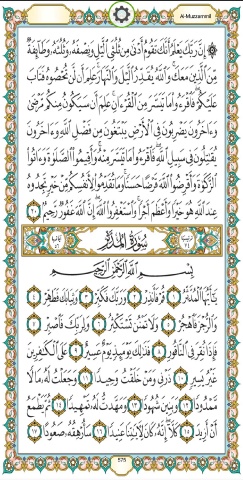 Al-Muzzammil
۞ إِنَّ رَبَّكَ يَعْلَمُ أَنَّكَ تَقُومُ أَدْنَىٰ مِن ثُلُثَىِ ٱلَّيْلِ وَنِصْفَهُۥ وَثُلُثَهُۥ وَطَآئِفَةٌ
مِّنَ ٱلَّذِينَ مَعَكَ ۚ وَٱللَّهُ يُقَدِّرُ ٱلَّيْلَ وَٱلنَّهَارَ ۚ عَلِمَ أَن لَّن تُحْصُوهُ فَتَابَ
عَلَيْكُمْ ۖ فَٱقْرَءُوا۟ مَا تَيَسَّرَ مِنَ ٱلْقُرْءَانِ ۚ عَلِمَ أَن سَيَكُونُ مِنكُم مَّرْضَىٰ
وَءَاخَرُونَ يَضْرِبُونَ فِى ٱلْأَرْضِ يَبْتَغُونَ مِن فَضْلِ ٱللَّهِ ۙ وَءَاخَرُونَ
يُقَٰتِلُونَ فِى سَبِيلِ ٱللَّهِ ۖ فَٱقْرَءُوا۟ مَا تَيَسَّرَ مِنْهُ ۚ وَأَقِيمُوا۟ ٱلصَّلَوٰةَ وَءَاتُوا۟
ٱلزَّكَوٰةَ وَأَقْرِضُوا۟ ٱللَّهَ قَرْضًا حَسَنًا ۚ وَمَا تُقَدِّمُوا۟ لِأَنفُسِكُم مِّنْ خَيْرٍ تَجِدُوهُ
عِندَ ٱللَّهِ هُوَ خَيْرًا وَأَعْظَمَ أَجْرًا ۚ وَٱسْتَغْفِرُوا۟ ٱللَّهَ ۖ إِنَّ ٱللَّهَ غَفُورٌ رَّحِيمٌۢ ٢٠
سُورَةُ ٱلْمُدَّثِّرِ
بِسْمِ ٱللَّهِ ٱلرَّحْمَٰنِ ٱلرَّحِيمِ
يَٰٓأَيُّهَا ٱلْمُدَّثِّرُ ١ قُمْ فَأَنذِرْ ٢ وَرَبَّكَ فَكَبِّرْ ٣ وَثِيَابَكَ فَطَهِّرْ ٤
وَٱلرُّجْزَ فَٱهْجُرْ ٥ وَلَا تَمْنُن تَسْتَكْثِرُ ٦ وَلِرَبِّكَ فَٱصْبِرْ ٧
فَإِذَا نُقِرَ فِى ٱلنَّاقُورِ ٨ فَذَٰلِكَ يَوْمَئِذٍ يَوْمٌ عَسِيرٌ ٩ عَلَى ٱلْكَٰفِرِينَ
غَيْرُ يَسِيرٍ ١٠ ذَرْنِى وَمَنْ خَلَقْتُ وَحِيدًا ١١ وَجَعَلْتُ لَهُۥ مَالًا
مَّمْدُودًا ١٢ وَبَنِينَ شُهُودًا ١٣ وَمَهَّدتُّ لَهُۥ تَمْهِيدًا ١٤ ثُمَّ يَطْمَعُ
أَنْ أَزِيدَ ١٥ كَلَّآ ۖ إِنَّهُۥ كَانَ لِءَايَٰتِنَا عَنِيدًا ١٦ سَأُرْهِقُهُۥ صَعُودًا ١٧
575